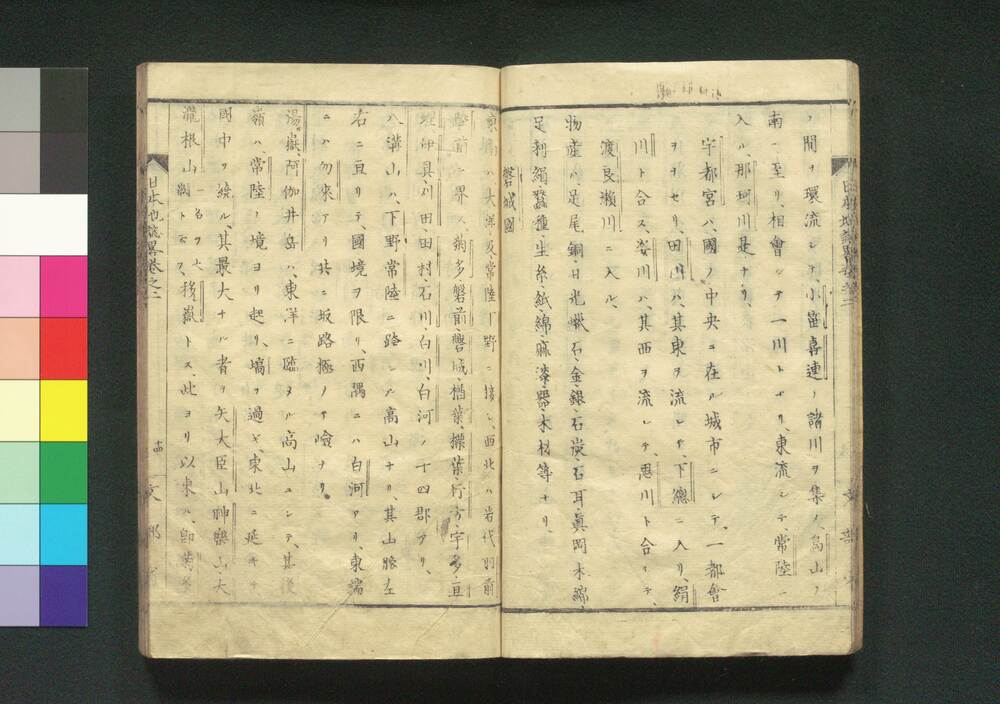 ノ間ヲ環流シテ、小笛喜連ノ諸川ヲ集メ、烏山ノ
南ニ至リ、相會シテ一川トナリ、東流シテ、常陸ニ
入ル、那珂川是ナリ、
宇都宮ハ、國ノ中央ニ在ル城市ニシテ、一都會
ヲナセリ、田川ハ、其東ヲ流レテ、下總ニ入リ、絹
川ト合ス、姿川ハ、其西ヲ流レテ、思川ト合シテ、
渡良瀨川ニ入ル、
物産ハ、足尾銅、日光蠟石、金、銀、石炭、石耳、眞岡木綿、
足利絹、蠶種、生糸、紙、綿、麻、漆器、木材等ナリ、
磐城國
東南ハ大洋及常陸下野ニ接シ、西北ハ岩代羽前
陸前ニ界ス、菊多、磐前、磐城、楢葉、標葉、行方、宇多、亘
理、伊具、刈田、田村、石川、白川、白河ノ十四郡アリ、
八溝山ハ、下野常陸ニ跨レル高山ナリ、其山脈左
右ニ亘リテ、國境ヲ限リ、西隅ニハ白河アリ、東端
ニハ勿來アリ共ニ坂路極メテ嶮ナリ、
湯嶽、阿伽井岳ハ、東洋ニ臨メル高山ニシテ、其後
嶺ハ、常陸ノ境ヨリ起リ、塙ヲ過ギ、東北ニ延キテ
國中ヲ繞ル、其最大ナル者ヲ矢大臣山、神樂山、大
瀧根山、一名ヲ大瀧ト云フ、移嶽トス此ヨリ以東ハ、即菊多
日本地誌畧卷之二
十四
文部